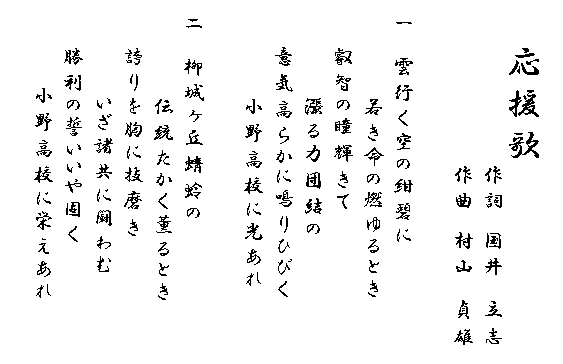 応援歌
作詞 国井 立志
作曲 村山 貞雄
一 雲行く空の紺碧に
若き命の燃ゆるとき
叡智の瞳輝きて
漲る力団結の
意気高らかに鳴りひびく
小野高校に光あれ
二 柳城ヶ丘蜻蛉の
伝統たかく薫るとき
誇りを胸に技磨き
いざ諸共に闘わむ
勝利の誓いいや固く
小野高校に栄えあれ